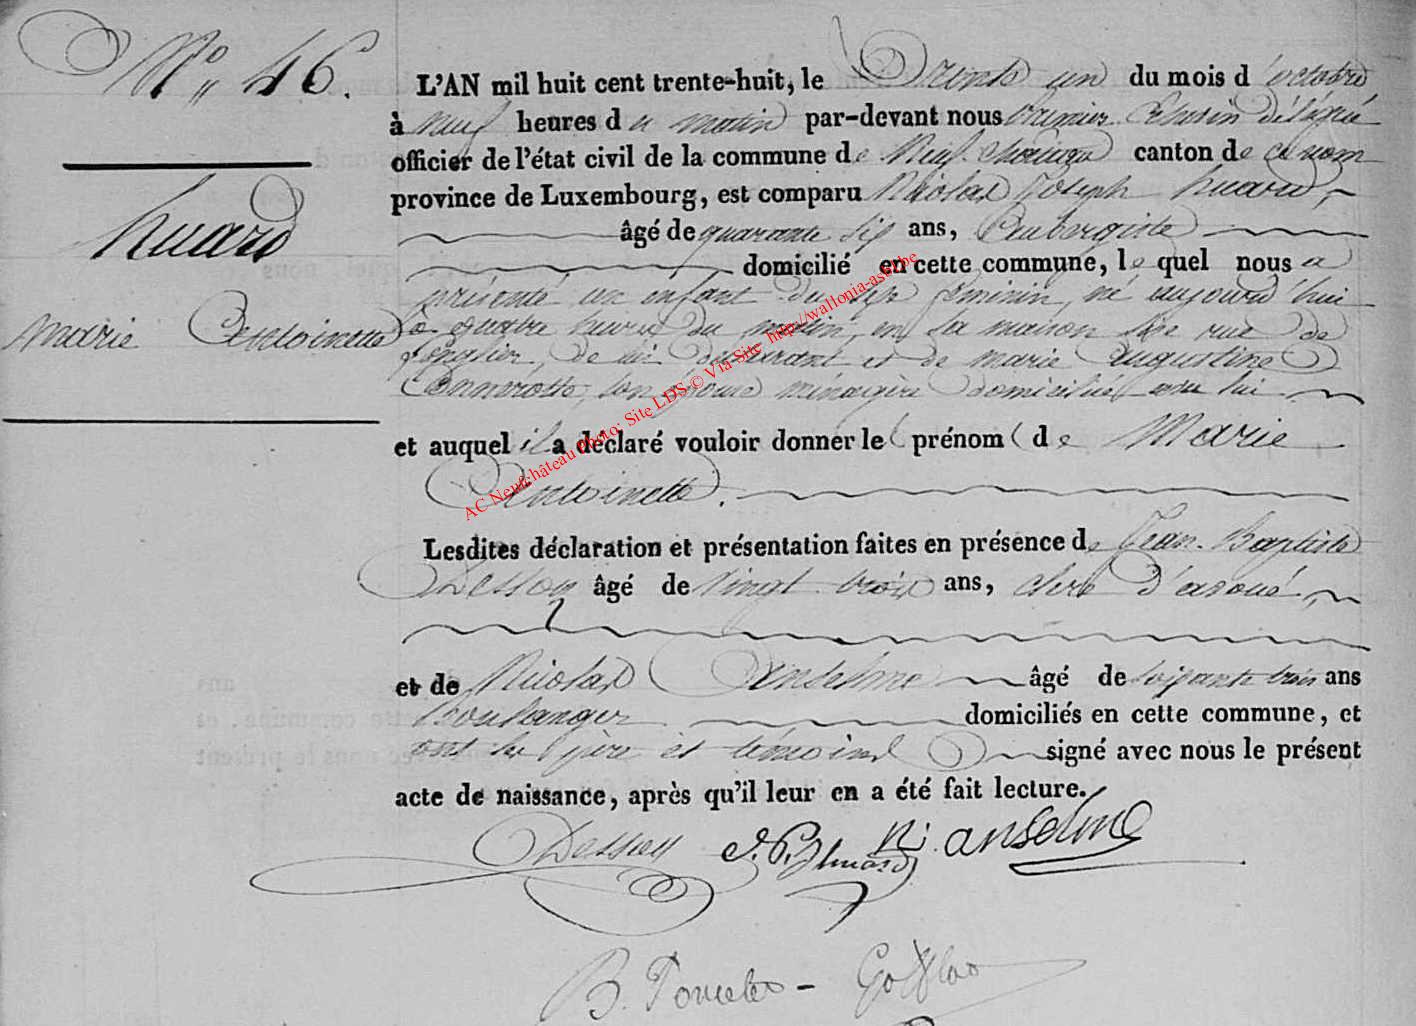 N° 46.
L'AN mil huit cent trente-huit, le Trente un du mois d'octobre
à neuf heures du matin par-devant nous premier Echevin délégué
officier de l'état civil de la commune de Neufchateau canton de ce nom
province de Luxembourg, est comparu Nicolas Joseph huard,
huard
âgé de quarante six ans, Aubergiste
domicilié en cette commune, le quel nous a
présenté un enfant du sexe féminin, né aujourd'hui
Marie Antoinette
à quatre heures du matin, en sa maison sise rue de
de lui déclarant et de marie augustine
son épouse ménagère domiciliée avec lui
et auquel il a déclaré vouloir donner le prénom de Marie
Antoinette.
Lesdites déclaration et présentation faites en présence de Jean-Baptiste
Dessoy âgé de vingt trois ans, clerc d'avoué,
et de Nicolas Anselme âgé de soixante trois ans
Boulanger domiciliés en cette commune, et
ont les père et témoins signé avec nous le présent
acte de naissance, après qu'il leur en a été fait lecture.
Dessoy huard N. anselme
B. Poncelet - Goffloo
AC Neufchâteau Photo: Site LDS © Via Site http://wallonia-asbl.be